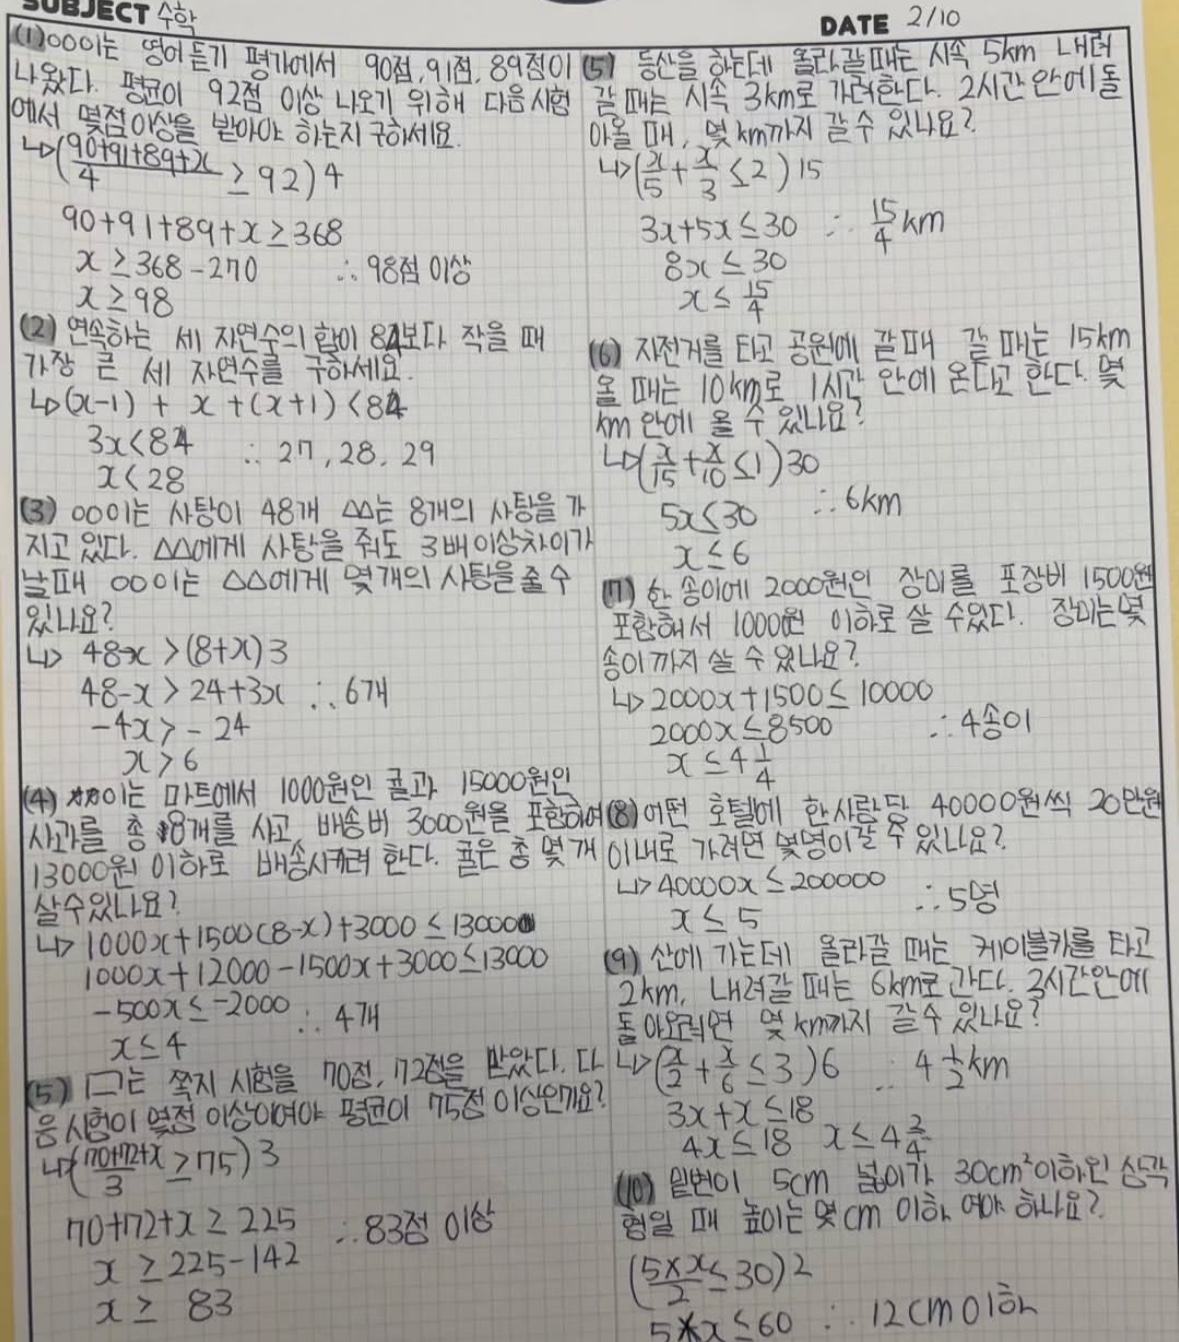 SUBJECT 수학
DATE 2/10
(1) OO이는 영어 듣기 평가에서 90점, 91점, 89점이
나왔다. 평균이 92점 이상 나오기 위해 다음 시험
에서 몇점이상을 받아야 하는지 구하세요.
↳(90+91+89+x/4 ≥ 92)4
90+91+89+x ≥ 368
x ≥ 368-270 ∴ 98점 이상
x ≥ 98
(2) 연속하는 세 자연수의 합이 84보다 작을 때
가장 큰 세 자연수를 구하세요.
↳(x-1) + x + (x+1) < 84
3x < 84 ∴ 27, 28, 29
x < 28
(3) OO이는 사탕이 48개 △△는 8개의 사탕을 가
지고 있다. △△에게 사탕을 줘도 3배이상차이가
날때 OO이는 △△에게 몇개의 사탕을 줄 수
있나요?
↳ 48-x > (8+x)3
48-x > 24+3x ∴ 6개
-4x > -24
x > 6
(4) ☆☆이는 마트에서 1000원인 귤과 15000원인
사과를 총 8개를 사고, 배송비 3000원을 포함하여
13000원 이하로 배송시키려 한다. 귤은 총 몇개
살수있나요?
↳ 1000x+1500(8-x)+3000 ≤ 13000
1000x+12000-1500x+3000 ≤ 13000
-500x ≤ -2000 ∴ 4개
x ≤ 4
(5) □는 쪽지 시험을 70점, 72점을 받았다. 다
음 시험이 몇점 이상이여야 평균이 75점 이상인가요?
↳(70+72+x/3 ≥ 75)3
70+72+x ≥ 225 ∴ 83점 이상
x ≥ 225-142
x ≥ 83
(5) 등산을 하는데 올라갈때는 시속 5km 내려
갈 때는 시속 3km로 가려한다. 2시간 안에 돌
아올 때, 몇 km까지 갈 수 있나요?
↳(x/5 + x/3 ≤ 2)15
3x+5x ≤ 30 ∴ 15/4 km
8x ≤ 30
x ≤ 15/4
(6) 자전거를 타고 공원에 갈때 갈 때는 15km
올 때는 10km로 1시간 안에 온다고 한다. 몇
km 안에 올 수 있나요?
↳(x/15 + x/10 ≤ 1)30
5x ≤ 30 ∴ 6km
x ≤ 6
(7) 한 송이에 2000원인 장미를 포장비 1500원
포함해서 1000원 이하로 살 수있다. 장미는 몇
송이까지 살 수 있나요?
↳ 2000x+1500 ≤ 10000
2000x ≤ 8500 ∴ 4송이
x ≤ 4 1/4
(8) 어떤 호텔에 한사람당 40000원씩 20만원
이내로 가려면 몇명이갈 수 있나요?
↳ 40000x ≤ 200000 ∴ 5명
x ≤ 5
(9) 산에 가는데 올라갈 때는 케이블카를 타고
2km, 내려갈 때는 6km로 간다. 3시간안에
돌아오려면 몇 km까지 갈수 있나요?
↳(x/2 + x/6 ≤ 3)6 ∴ 4 1/2 km
3x+x ≤ 18
4x ≤ 18 x ≤ 4 2/4
(10) 밑변이 5cm 넓이가 30cm² 이하인 삼각
형일 때 높이는 몇 cm 이하 여야 하나요?
(5×x/2 ≤ 30)2
5×x ≤ 60 ∴ 12cm 이하